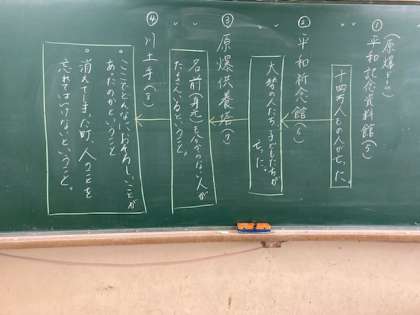 (原爆ドーム)
① 平和記念資料館(き)
十四万人もの人が亡くなった。
② 平和祈念館(も)
大勢の人たち、子どもたちが亡くなった。
③ 原爆供養塔(り)
名前(身元)も分からない人がたくさんいるということ。
④ 川土手(き)
・ここでどんなにおそろしいことがあったのかということ
・消えてしまった町、人のことを忘れてはいけないということ。